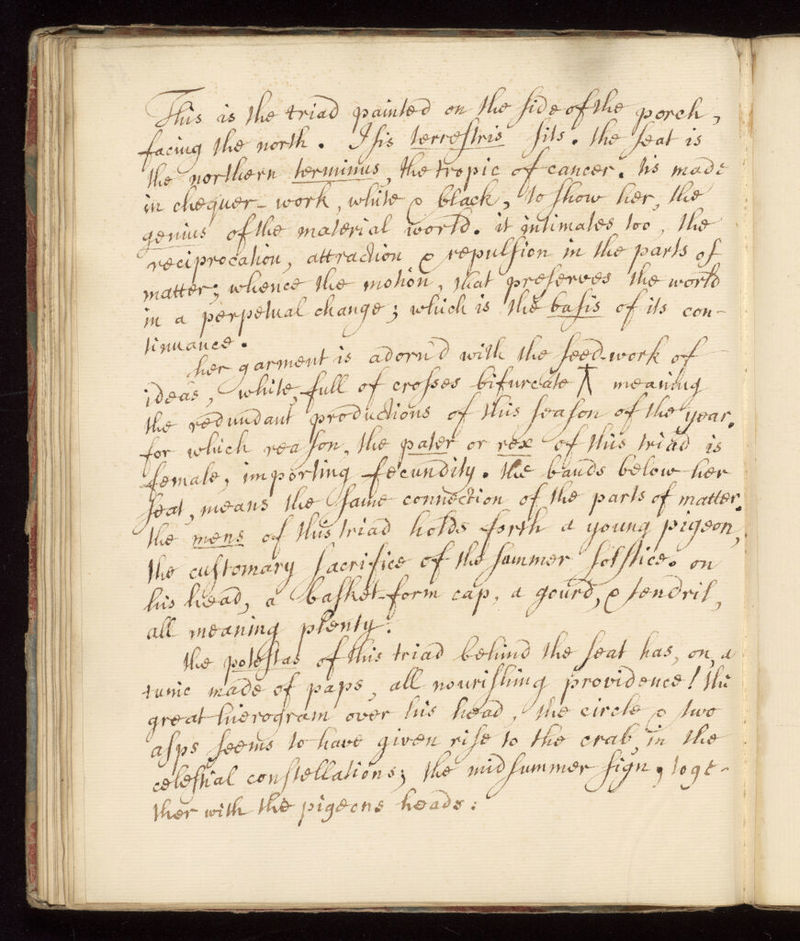 This is the triad painted on the side of the porch,
facing the north. Isis terrestris sits. the seat is
the northern terminus, the tropic of cancer. tis made
in chequer-work, white & black, to show her, the
genius of the material world. it intimates too, the
reciprocation, attraction & repulsion in the parts of
matter; whence the motion, that preserves the world
in a perpetual change; which is the basis of its con-
tinuance.
her garment is adorn'd with the seed-work of
ideas, white, full of crosses bifurcate meaning
the redundant productions of this season of the year.
for which reason, the pater or rex of this triad is
female, importing fecundity. the bands below her
seat, means the same connection of the parts of matter.
the mens of this triad holds forth a young pigeon,
the customary sacrifice of the summer solstice. on
his head, a basket-form cap, a gourd, & tendril,
all meaning plenty.
the potestas of this triad behind the seat has, on, a
tunic made of paps, all nourishing providence! the
great hierogram over his head, the circle & two
asps seems to have given rise to the crab, in the
celestial constellations; the midsummer sign, toge-
ther with the pigeons heads: